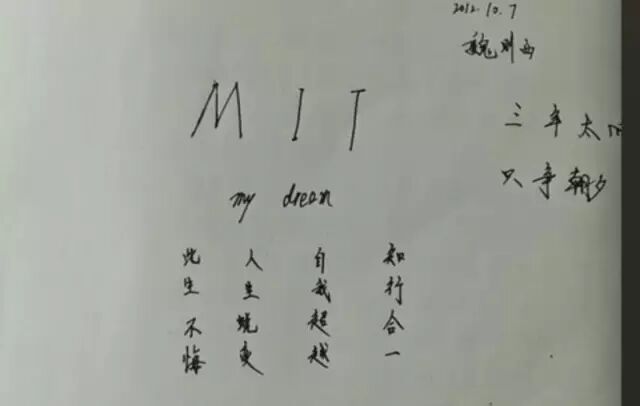 2012.10.7
魏则西
MIT
my dream
三年太
只争朝夕
知行合一
自我超越
人生蜕变
此生不悔